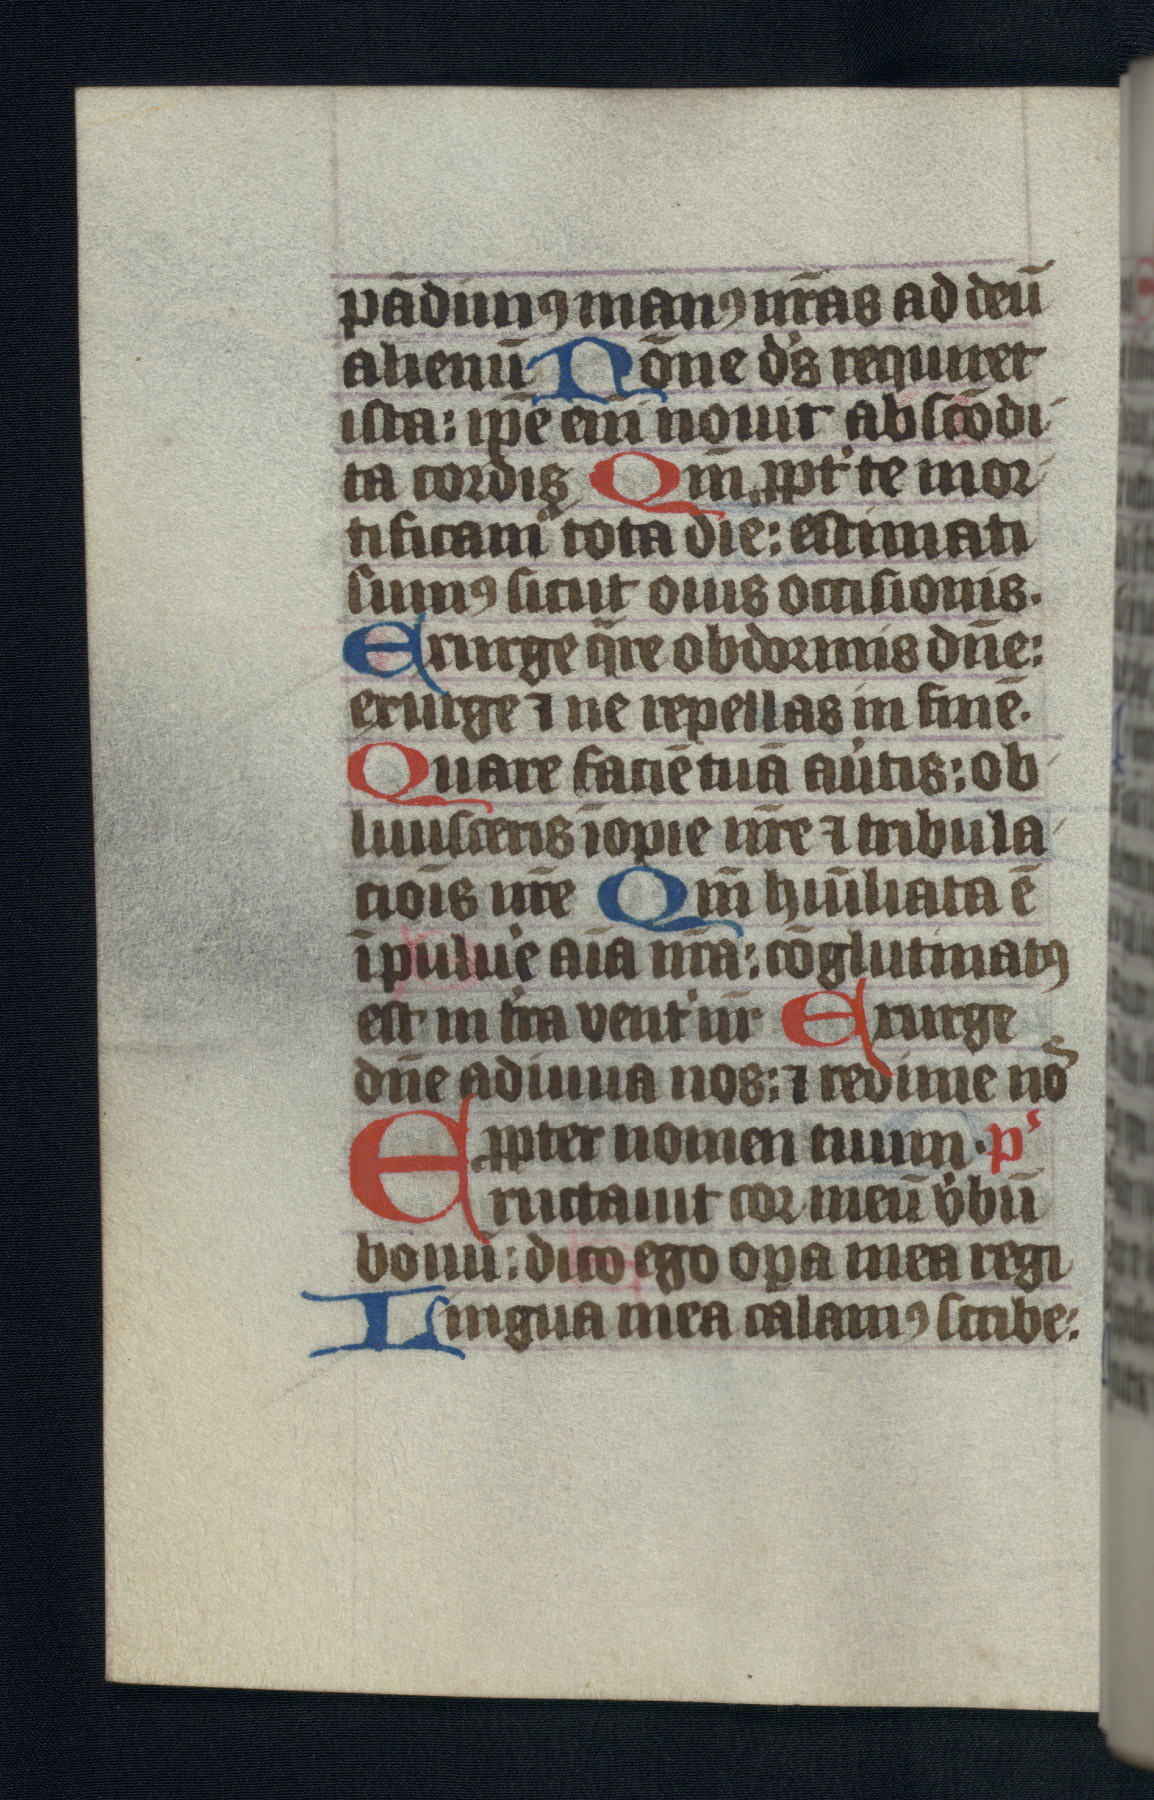 pādimꝰ manꝰ nr̄as ad deū
alienū Nōne ds̓ requiret
ista: ip̄e em̄ nouit abscōdi
ta cordis Qm̄ ꝓpt̓ te mor
tificam̓ tota die: estimati
sumꝰ sicut ouis occisionis.
Exurge q̄re obdormis dn̄e:
exurge ⁊ ne repellas in finē.
Quare faciē tuā au̓tis: ob
liuisceris īopie nr̄e ⁊ tribula
ciōis nr̄e Qm̄ hūiliata ē
ī pulue̓ aīa nr̄a: cōglutinatꝰ
est in t̓ra vent̓ nr̄ Exurge
dn̄e adiuua nos: ⁊ redime nos
ꝓpter nomen tuum. p̓s
Eructauit cor meū v̓bū
bonū: dico ego oꝑa mea regi
Lingua mea calamꝰ scribe: